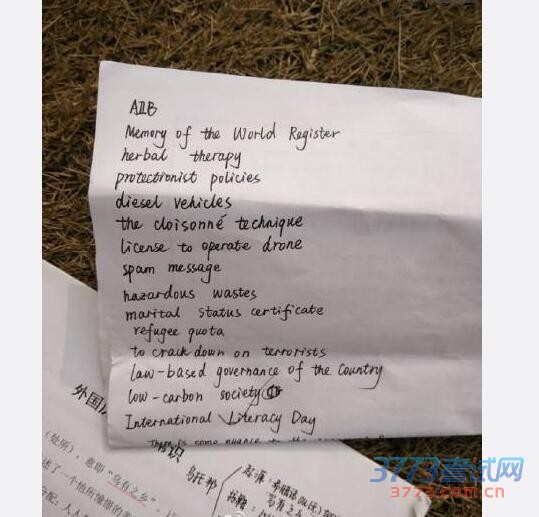 AIIB
Memory of the World Register
herbal therapy
protectionist policies
diesel vehicles
the cloisonné technique
license to operate drone
spam message
hazardous wastes
marital status certificate
refugee quota
to crack down on terrorists
law-based governance of the Country
low-carbon society
International Literacy Day
There is some nuance
外国
识
(处所),意即"乌有之乡"
乌托邦
起源:希腊语
乌有之
书籍
述了一个他所憧憬的美
分配:人人
3773考试网
3773.com.cn